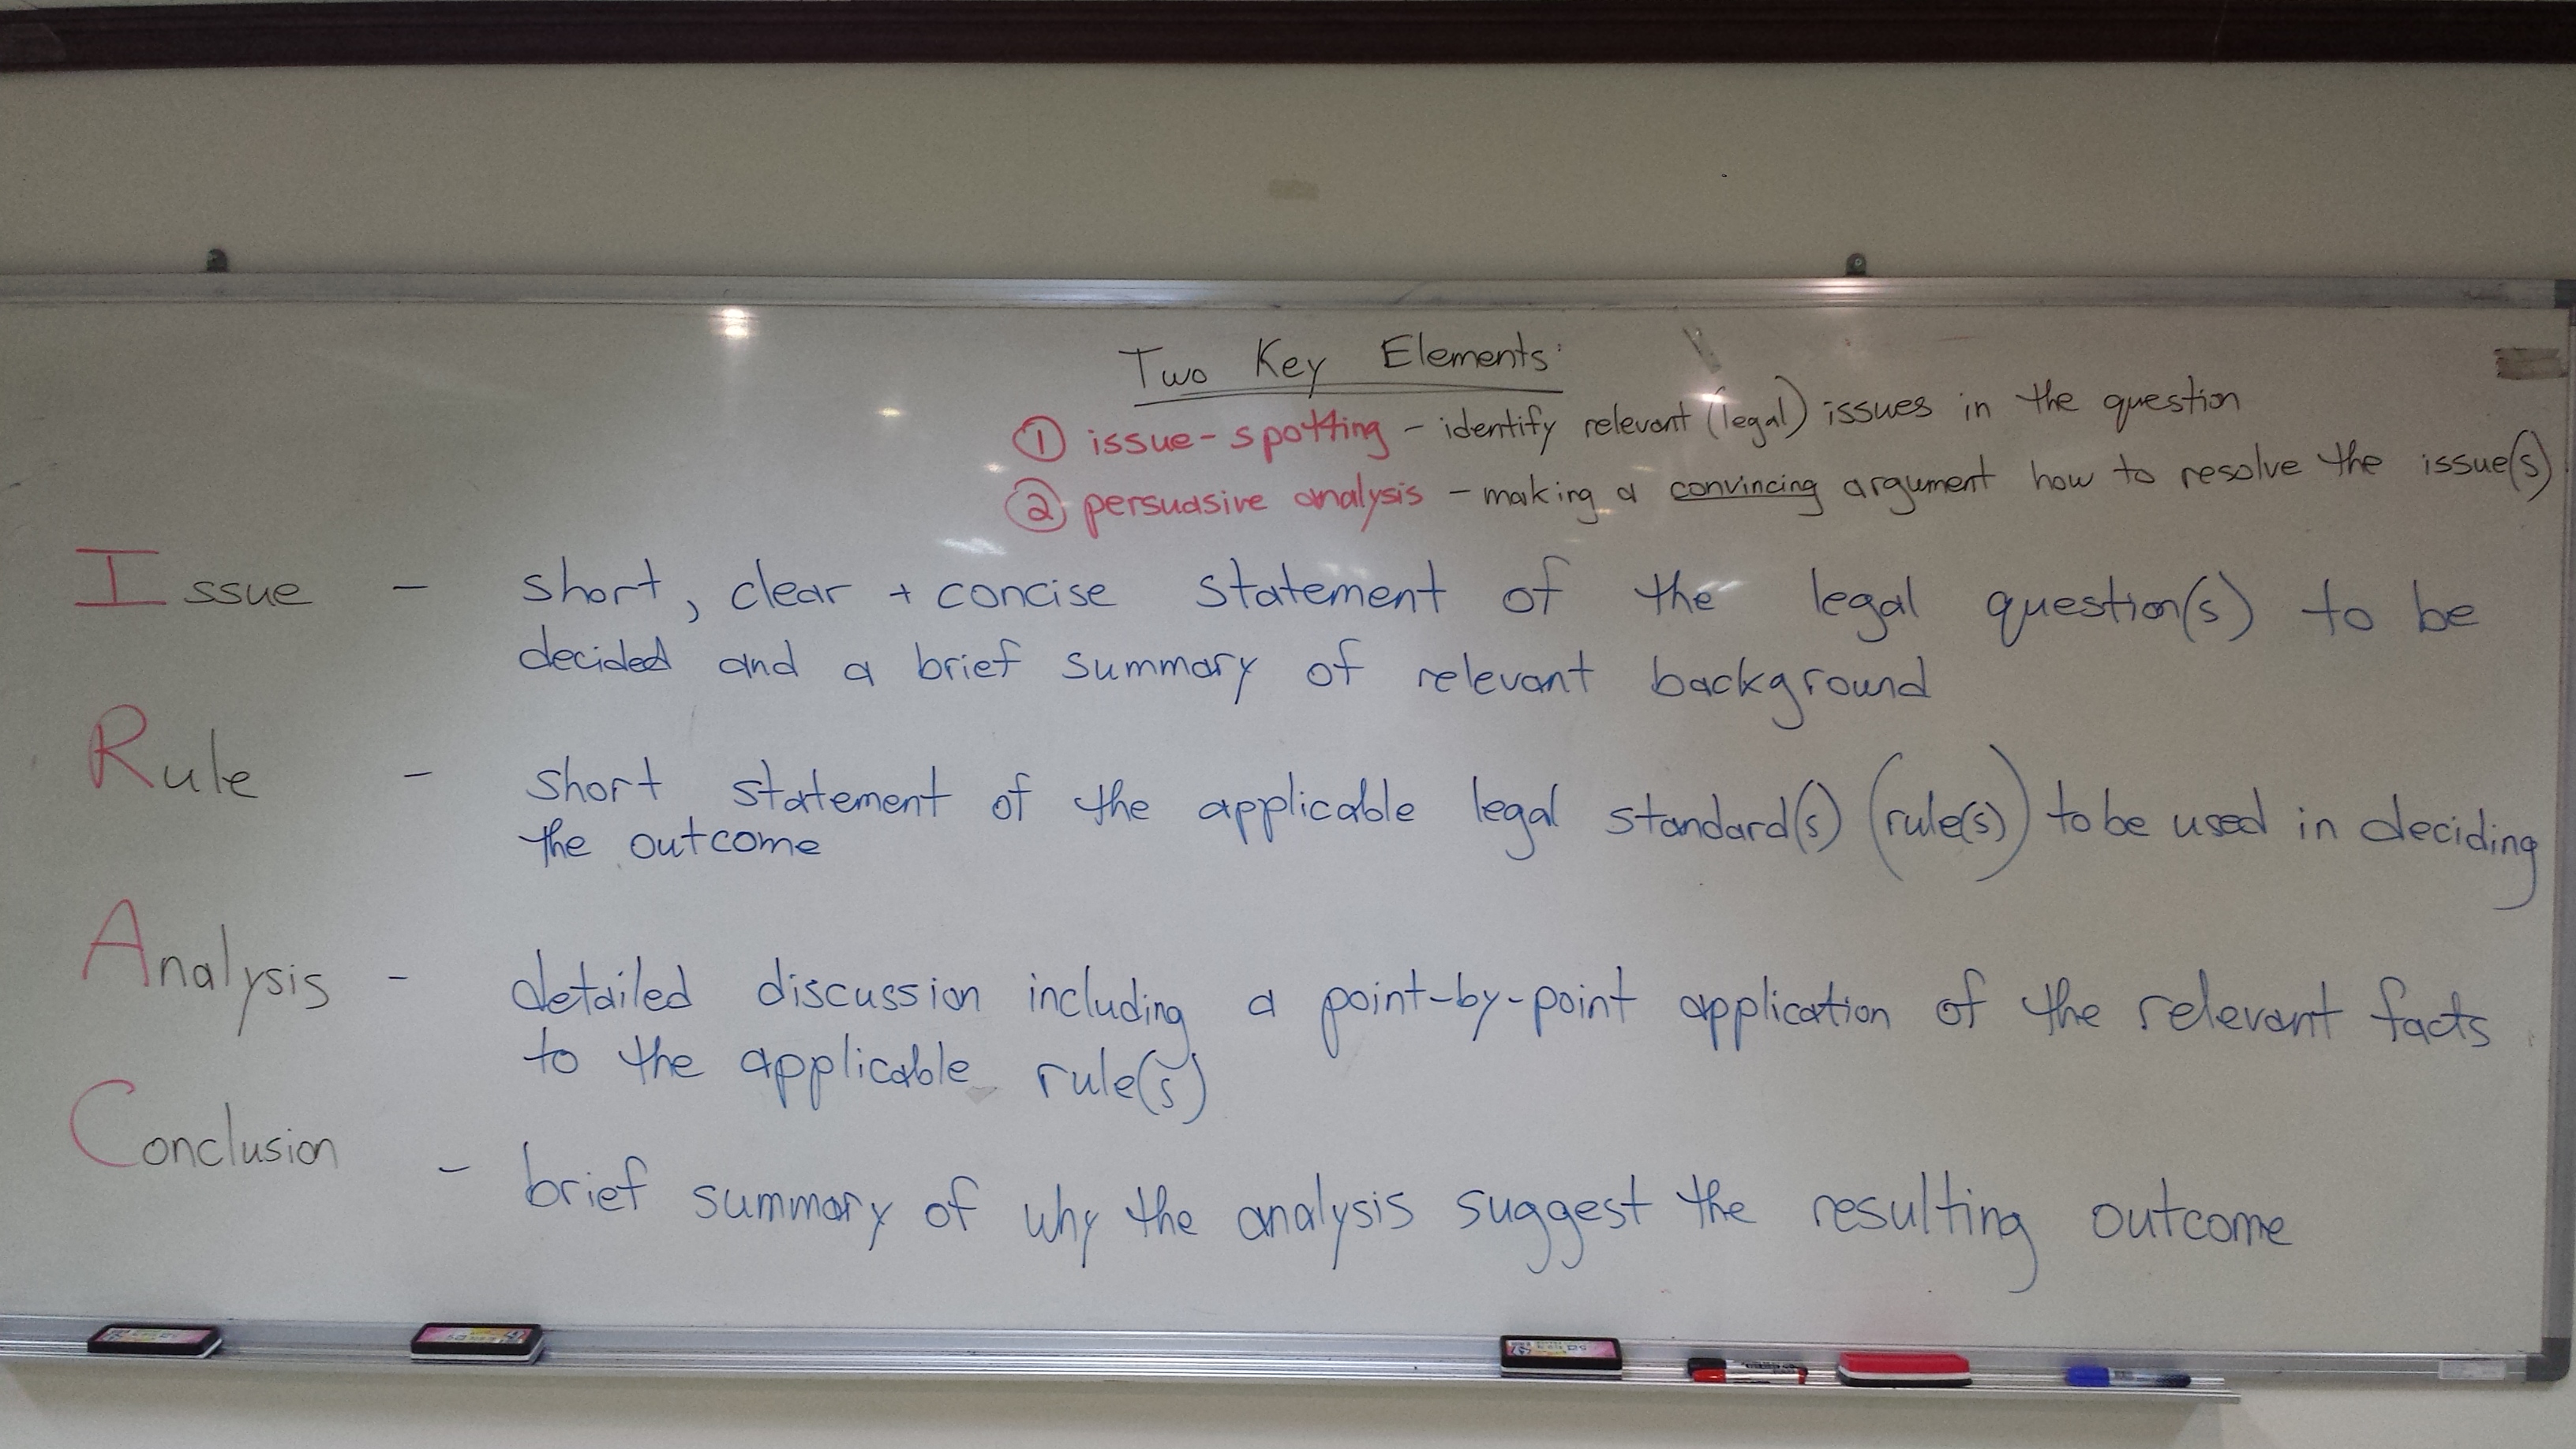 Two Key Elements:
① issue-spotting - identify relevant (legal) issues in the question
② persuasive analysis - making a convincing argument how to resolve the issue(s)
Issue - short, clear + concise statement of the legal question(s) to be
decided and a brief summary of relevant background
Rule - short statement of the applicable legal standard(s) (rule(s)) to be used in deciding
the outcome
Analysis - detailed discussion including a point-by-point application of the relevant facts
to the applicable rule(s)
Conclusion - brief summary of why the analysis suggest the resulting outcome